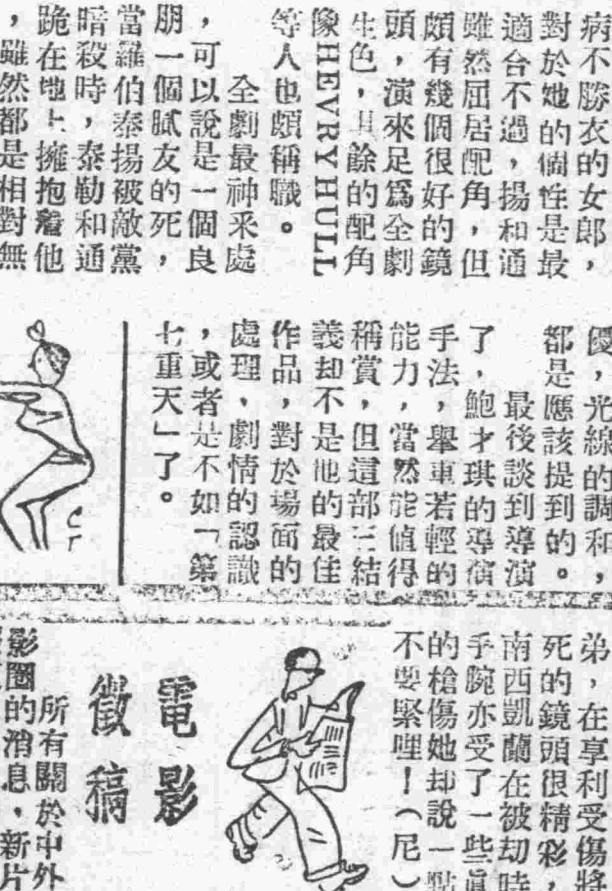 病不勝衣的女郎，
對於她的個性是最
適合不過，揚和通
雖然屈居配角，但
頗有幾個很好的鏡
頭，演來足爲全劇
生色，其餘的配角
像HEVRY HULL
等人也頗稱職。
全劇最神釆處
，可以說是一個良
朋一個膩友的死，
當羅伯泰揚被敵黨
暗殺時，泰勒和通
跪在地上擁抱着他
，雖然都是相對無
優，光線的調和，
都是應該提到的。
最後談到導演
了，鮑才琪的導演
手法，舉重若輕的
能力，當然能值得
稱賞，但這部三結
義却不是他的最佳
作品，對於場面的
處理，劇情的認識
，或者是不如「第
七重天」了。
Cr
弟，在享利受傷將
死的鏡頭很精彩，
南西凱蘭在被刧時
手腕亦受了一些眞
的槍傷她却說一點
不要緊哩！（尼）
電影
徵稿
所有關於中外
影圈的消息，新片